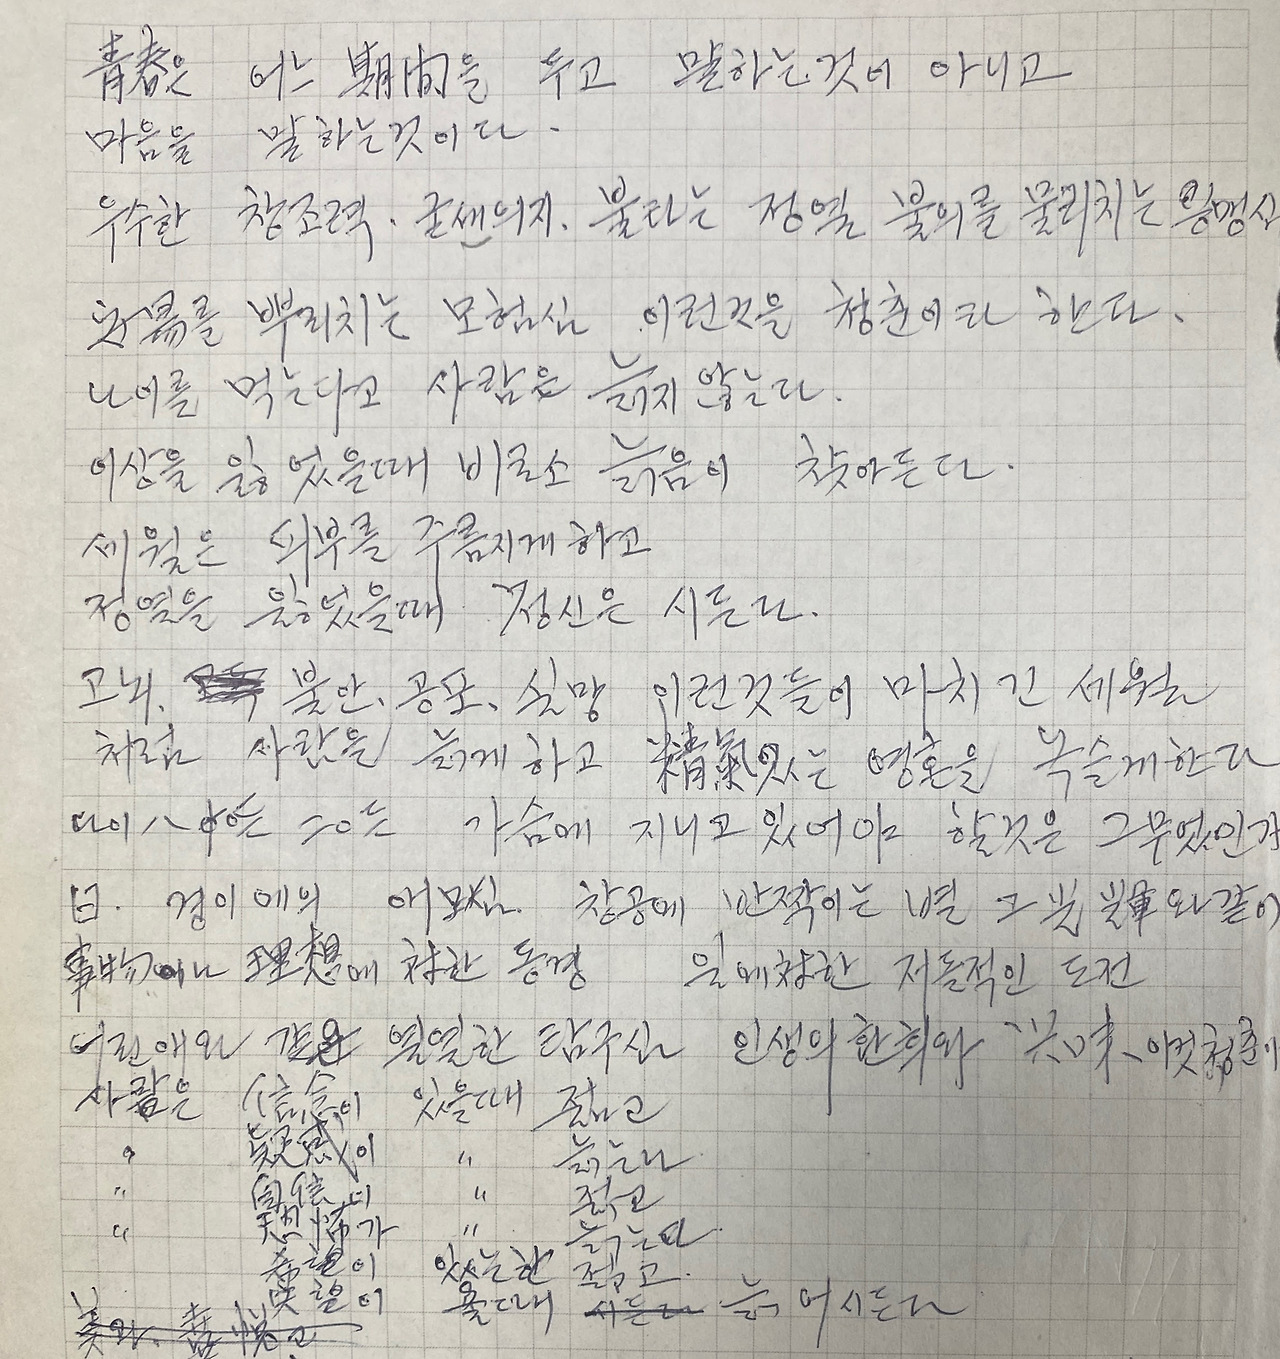 青春은 어느 期間을 두고 말하는것이 아니고
마음을 말하는것이다.
우수한 창조력. 굳쎈의지. 불타는 정열 불의를 물리치는
安易를 뿌리치는 모험심 이런것을 청춘이라 한다.
나이를 먹는다고 사람은 늙지 않는다.
이상을 잃었을때 비로소 늙음이 찾아든다.
세월은 피부를 주름지게하고
정열을 잃었을때 정신은 시든다.
고뇌. 불안. 공포. 실망 이런것들이 마치 긴 세월
처럼 사람을 늙게하고 精氣있는 영혼을 녹슬게한다
나이 가슴에 지니고 있어야 할것은 그무엇인가
曰. 경이에의 애모심. 창공에 반짝이는 별 그 와같이
事物에나 理想에 대한 동경 일에대한 저돌적인 도전
어린애와 같은 열열한 탐구심 인생의 환희와 兴味. 이것청춘이
사람은 信念이 있을때 젊고
〃 疑惑이 〃 늙는다
〃 自信이 〃 젊고
〃 恐怖가 〃 늙는다
希望이 있는한 젊고.
失望이 올때 시든다 늙어시든다